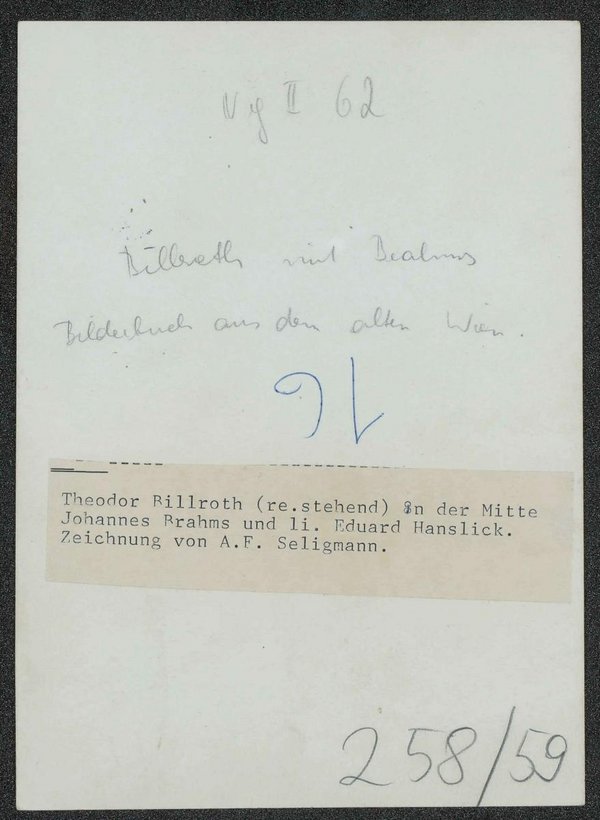 II 62
Billroth mit Brahms
Bilderbuch aus dem alten Wien.
Theodor Billroth (re.stehend) in der Mitte
Johannes Brahms und li. Eduard Hanslick.
Zeichnung von A.F. Seligmann.
258/59